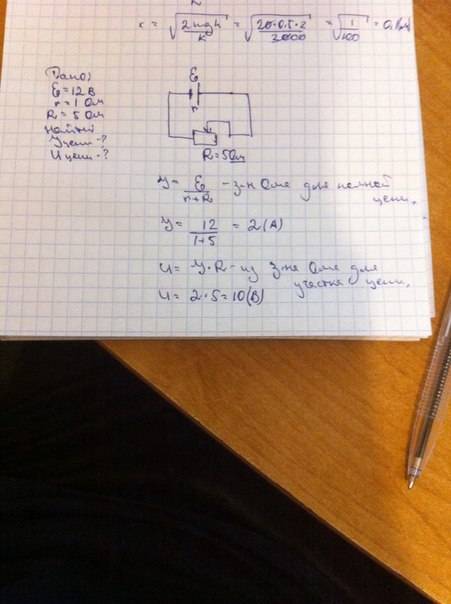 x = √(2mgh/k) = √(20·0,5·2/2000) = √(1/100) = 0,1(м)
Дано:
Ɛ = 12 В
r = 1 Ом
R = 5 Ом
Найти
Y цепи - ?
U цепи - ?
Ɛ
r
R = 5 Ом
Y = Ɛ/(r+R) - з-н Ома для полной
цепи.
Y = 12/(1+5) = 2 (А)
U = Y·R - из з-на Ома для
участка цепи.
U = 2·5 = 10 (В)